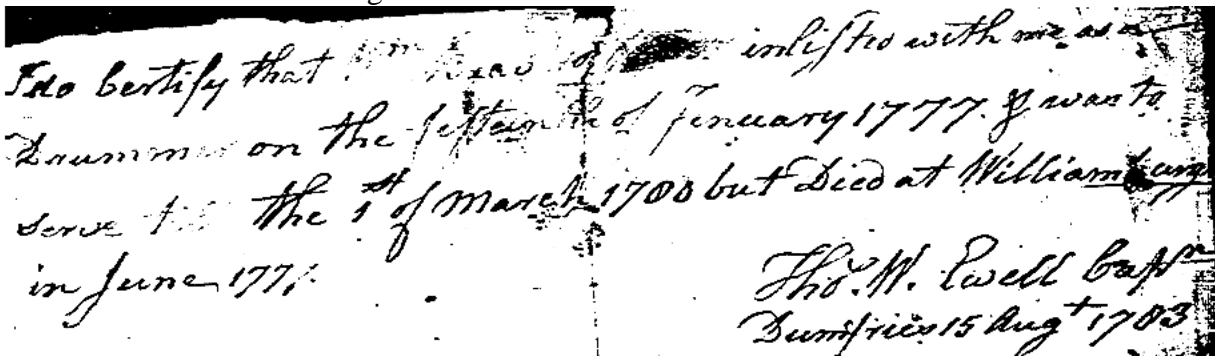 I do Certify that inlisted with me as a
Drummer on the fifteenth of Jenuary 1777. & was to
serve the 1st of March 1780 but Died at Williamsburg
in June 177
Tho. W. Ewell Captn
Dumfries 15 Augt 1783